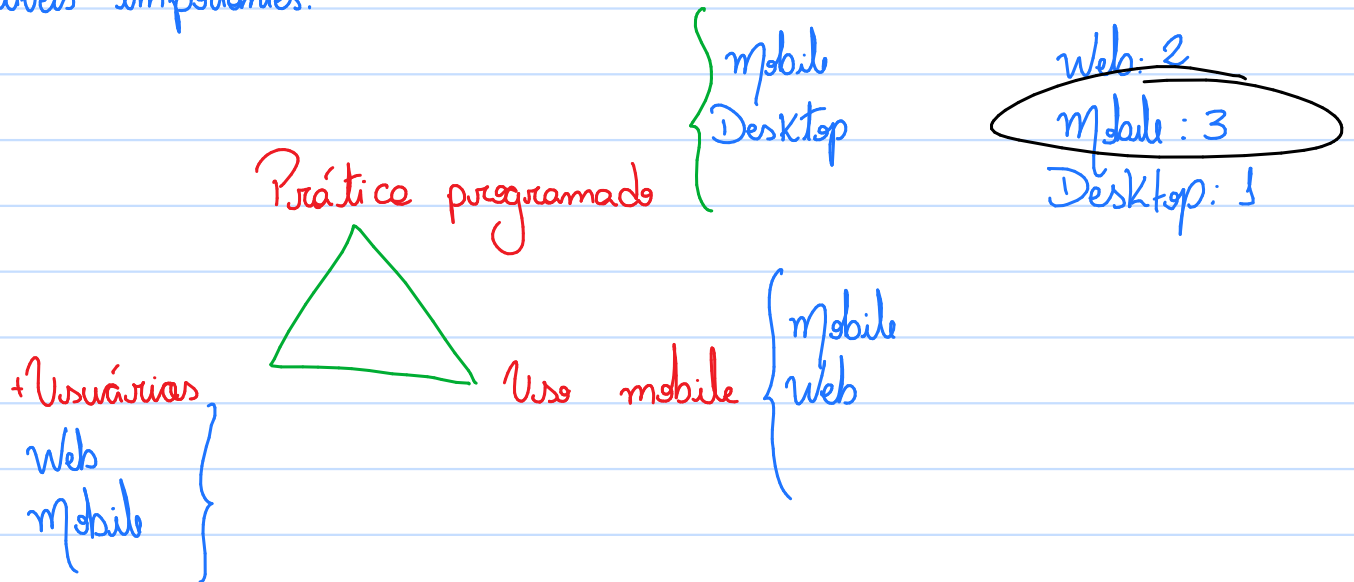 importantes.
Mobile
Desktop
Web: 2
Mobile : 3
Desktop: 1
Prática programado
+Usuários
Web
Mobile
Uso mobile
Mobile
Web